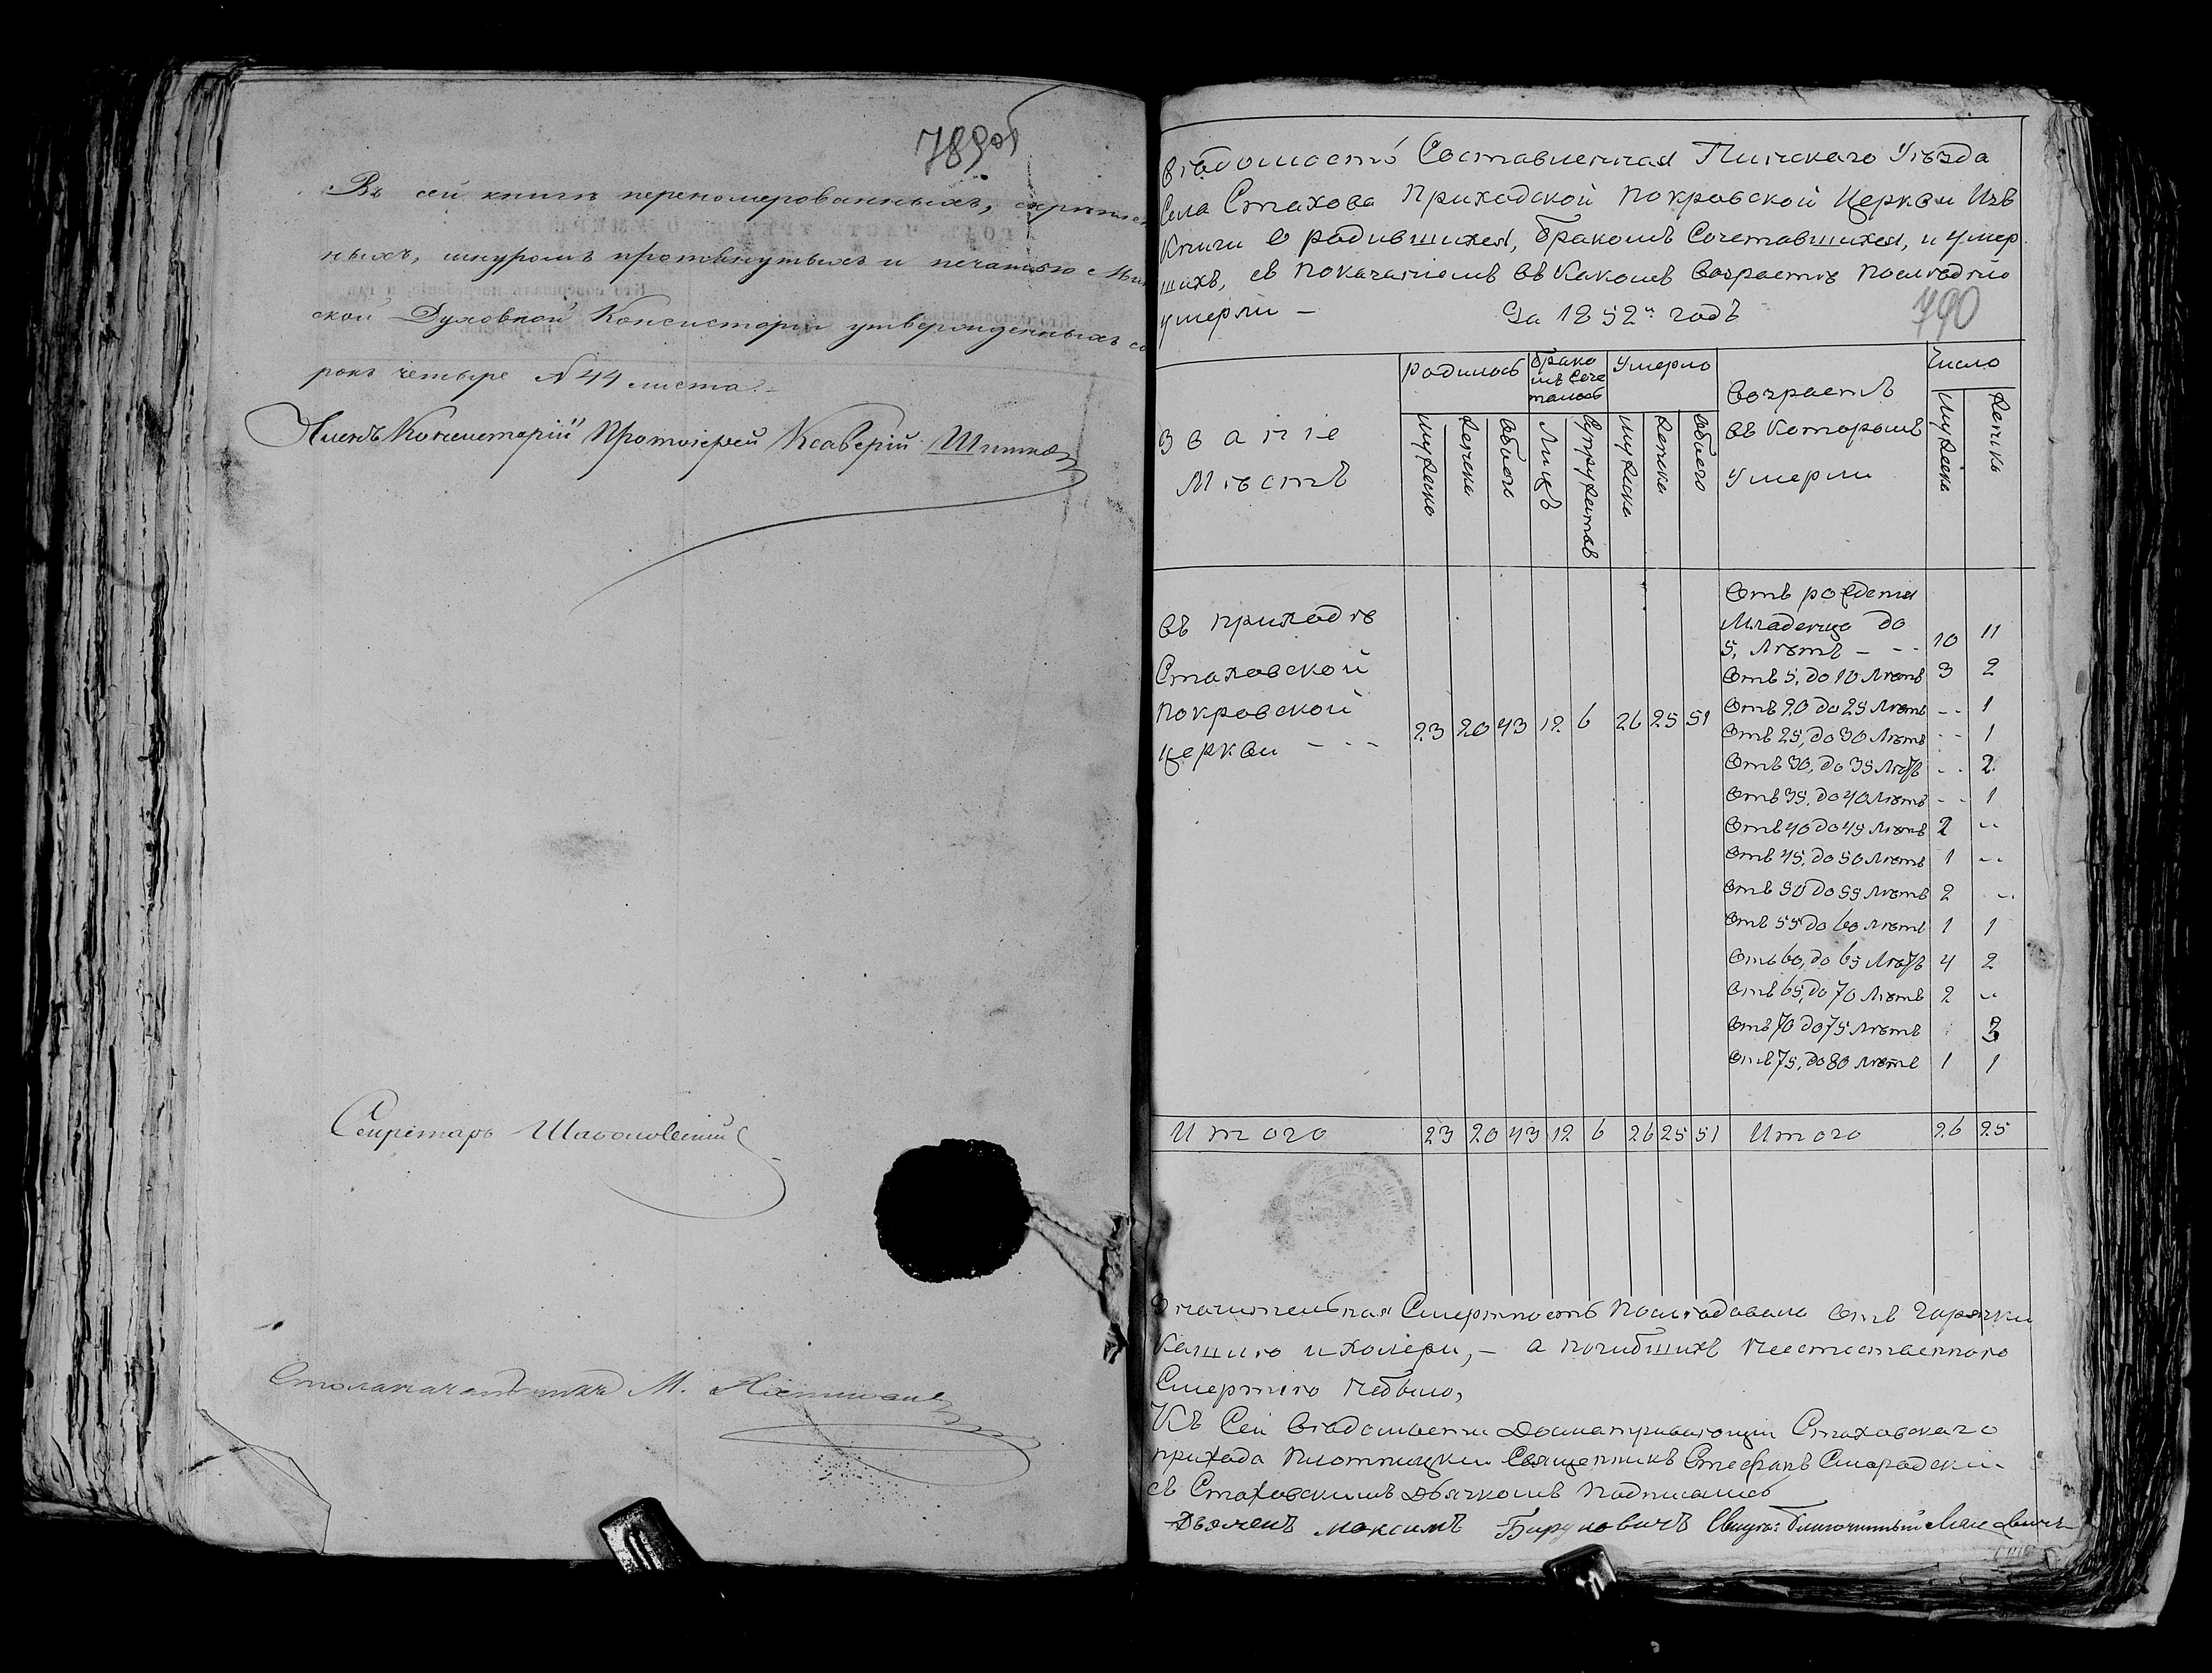 789об
Въ сей книгѣ переномерованныхъ, скрѣплен
ныхъ, шнуромъ протянутыхъ и печатью Мин
ской Духовной Консисторіи утвержденныхъ со
рокъ четыре N 44 листа.
Членъ Консисторіи Протоіерей Ксаверій
Секретарь
Столоначальникъ М.
Вѣдомость Составленная Пинскаго Уѣзда
Села Стахова Приходской Покровской Церкви Изъ
Книги о родившихся, бракомъ Сочетавшихся, и умер
шихъ, съ показаниемъ въ Какомъ Возрастѣ последнiе
умерли – За 1852й годъ
790
Званіе Мѣстъ
родилось
брако
мъ Соче
талось
Умерло
Возрастъ
въ Которомъ
Умерли
Число
мужеска
женска
обоего
Лицъ
Супружествъ
мужеска
женска
обоего
мужеска
женска
Въ приходѣ
Стаховской
Покровской
церкви - - - 23 20 43 12 6 26 25 51
Отъ рождения
Младенцо до
5, Лѣтъ - - - 10 11
Отъ 5, до 10 Лѣтъ 3 2
Отъ 20 до 25 Лѣтъ -- 1
Отъ 25, до 30 Лѣтъ -- 1
Отъ 30, до 35 Лѣтъ -- 2
Отъ 35, до 40 Лѣтъ -- 1
Отъ 40 до 45 Лѣтъ 2 --
Отъ 45, до 50 Лѣтъ 1 --
Отъ 50 до 55 Лѣтъ 2 --
Отъ 55 до 60 Лѣтъ 1 1
Отъ 60, до 65 Лѣтъ 4 2
Отъ 65, до 70 Лѣтъ 2 --
Отъ 70 до 75 Лѣтъ 3
Отъ 75, до 80 Лѣтъ 1 1
Итого 23 20 43 12 6 26 25 51 Итого 26 25
Значительная Смертность Последовала Отъ Горячки
Кашлю и холери, – а погибшихъ Неестественною
Смертию Небыло,
Къ Сей Ведомости Досматривающий Стаховскаго
прихода Плотницкий Священникъ Стефанъ Смородский
съ Стаховскимъ Дьячкомъ Подписались
Дьячекъ Максимъ Бируковичъ Свящ: Благочинный